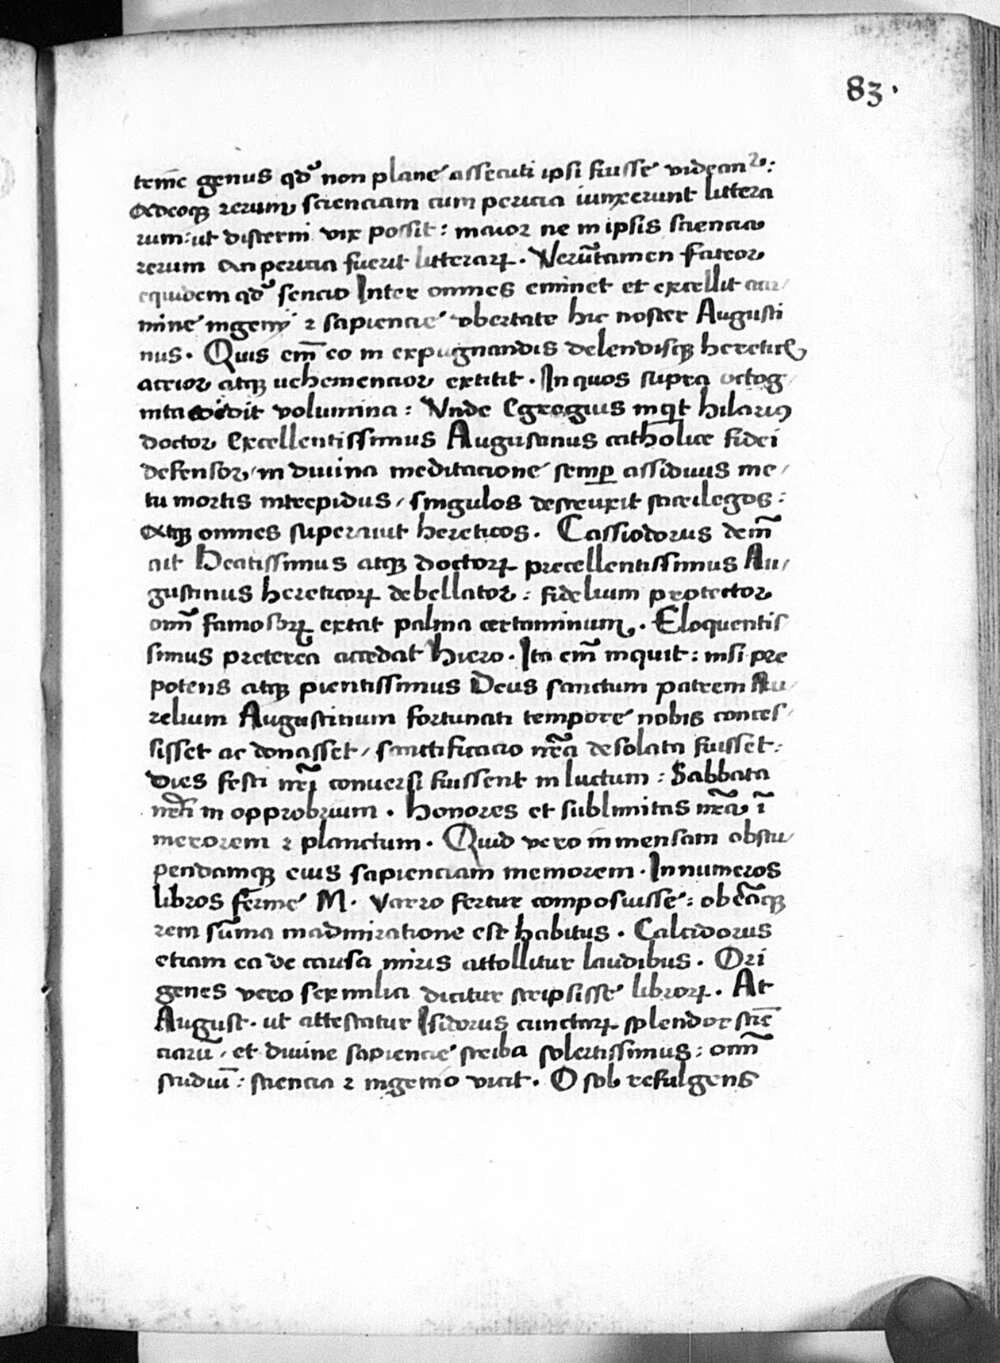 83.
temẽ genus qđ non plane assecuti ipsi fuisse videant̃:
Adeoqꝫ rerum scienciam cum pericia iunxerunt littera
rum: ut discerni vix possit: maior ne in ipsis sciencia
rerum an pericia fuerit litterarꝝ. Verũtamen fateor
equidem qđ sencio Inter omnes eminet et excellit acu/
mine ingenij ⁊ sapiencie vbertate hic noster Augusti
nus. Quis em̃ eo in expugnandis delendisqꝫ hereticꝭ
acrior atqꝫ uehemencior extitit. In quos supra octog
inta edidit volumina: Vnde Egregius inqͥt hilariꝰ
doctor Excellentissimus Augustinus catholice fidei
defensor/ in diuina meditacione semꝑ assiduus me/
tu mortis intrepidus/ singulos destruxit sacrilegos:
Atqꝫ omnes superauit hereticos. Cassiodorus dem̃
ait Beatissimus atqꝫ doctorꝝ precellentissimus Au/
gustinus hereticorꝝ debellator: fidelium protector
om̃ famosorꝝ extat palma certaminum. Eloquentis
simus preterea accedat hiero. Ita em̃ inquit: nisi pre
potens atqꝫ pientissimus Deus sanctum patrem Au/
relium Augustinum fortunati tempore nobis conces/
sisset ac donasset/ sanctificacio nr̃a desolata fuisset:
Dies festi nr̃j conuersi fuissent in luctum: Sabbata
nr̃i in opprobrium. honores et sublimitas nr̃a ĩ
merorem ⁊ planctum. Quid vero inmensam obstu/
pendamqꝫ euis sapienciam memorem. Innumeros
libros ferme M. Varro fertur composuisse: ob eãqꝫ
rem sũma inadmiratione est habitus. Calcidorus
etiam ea de causa miris attollitur laudibus. Ori
genes vero sex milia dicitur scripsisse librorꝝ. At
August. ut attestatur Isidorus cunctarꝝ splendor sciẽ
ciarũ/ et diuine sapiencie scriba solertissimus: om̃
studiũ: sciencia ⁊ ingenio vicit. O sol refulgens